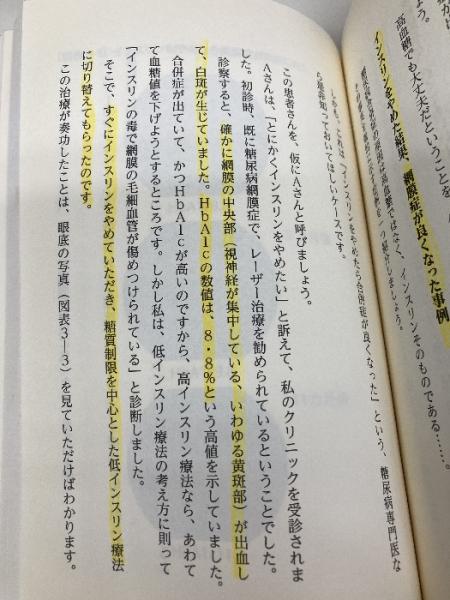 がは
よう。
高血糖でも大丈夫だということを
ではなく、インスリンそのものである……。
インスリンをやめた結果、網膜症が良くなった事例
つ紹介しましょう。
これは「インスリンをやめたら合併症が良くなった」という、糖尿病専門医な
ら是非知っておいてほしいケースです。
この患者さんを、仮にAさんと呼びましょう。
Aさんは、「とにかくインスリンをやめたい」と訴えて、私のクリニックを受診されま
した。初診時、既に糖尿病網膜症で、レーザー治療を勧められているということでした。
診察すると、確かに網膜の中央部（視神経が集中している、いわゆる黄斑部）が出血し
て、白斑が生じていました。HbA1cの数値は、8・8％という高値を示していました。
合併症が出ていて、かつHbA1cが高いのですから、高インスリン療法なら、あわて
て血糖値を下げようとするところです。しかし私は、低インスリン療法の考え方に則って
「インスリンの毒で網膜の毛細血管が傷めつけられている」と診断しました。
そこで、すぐにインスリンをやめていただき、糖質制限を中心とした低インスリン療法
に切り替えてもらったのです。
この治療が奏功したことは、眼底の写真（図表3―3）を見ていただけばわかります。